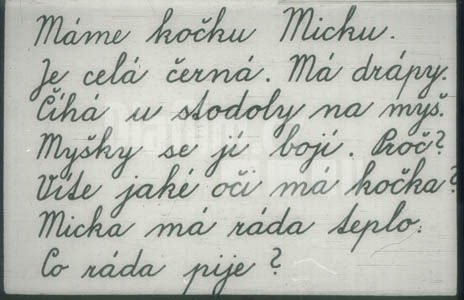 Máme kočku Micku.
Je celá černá. Má drápy.
Číhá u stodoly na myš.
Myšky se jí bojí. Proč?
Víte jaké oči má kočka?
Micka má ráda teplo.
Co ráda pije?